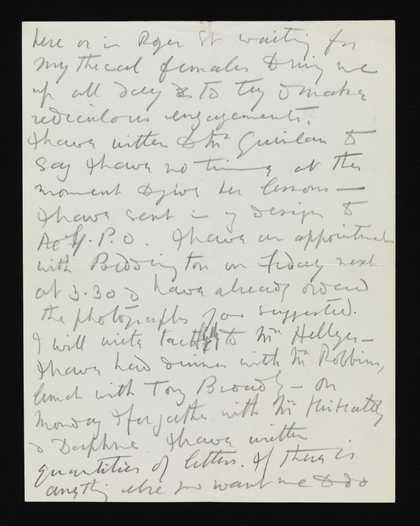 here or in Roger St waiting for
mythical females & ring me
up all day & to try & make
rediculous engagements.
I have written to Mrs Quinlan to
say I have no time at the
moment to give her lessons —
I have sent in my design to
A. of G.P.O. I have an appointment
with Boddington on Friday next
at 3.30 & have already ordered
the photographs you suggested.
I will write tactfully to Mrs Hellyer —
I have had dinner with Mr Robbins,
lunch with Tony — on
Monday I forgather with Mrs
& Daphne. I have written
quantities of letters. If there is
anything else you want me to do